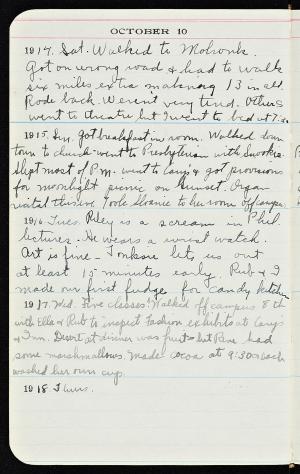 OCTOBER 10
1914. Sat. Walked to
Got on wrong road & had to walk
six miles extra making 13 in all.
Rode back. Weren't very tired. Others
went to theatre but I went to bed at 7:30
1915. Sun. got breakfast in room. Walked down
town to church - went to Presbyterian with
Slept most of P.M. went to Cary's got provisions
for moonlight picnic on Sunset. Organ
recital
1916. Tues. Riley is a scream in Phil
lectures. He wears a wrist watch.
Art is fine - Tonksie lets us out
at least 15 minutes early. Rub & I
made our first fudge for candy kitchen
1917. Wed. Five classes! Walked off campus 8th
with Ella & Rub to inspect Fashion exhibits at Cary's
& Inn. Desert at dinner was fruit but Rene had
some marshmallows. Made cocoa at 9:30 & each
washed her own cup.
1918 Thurs.